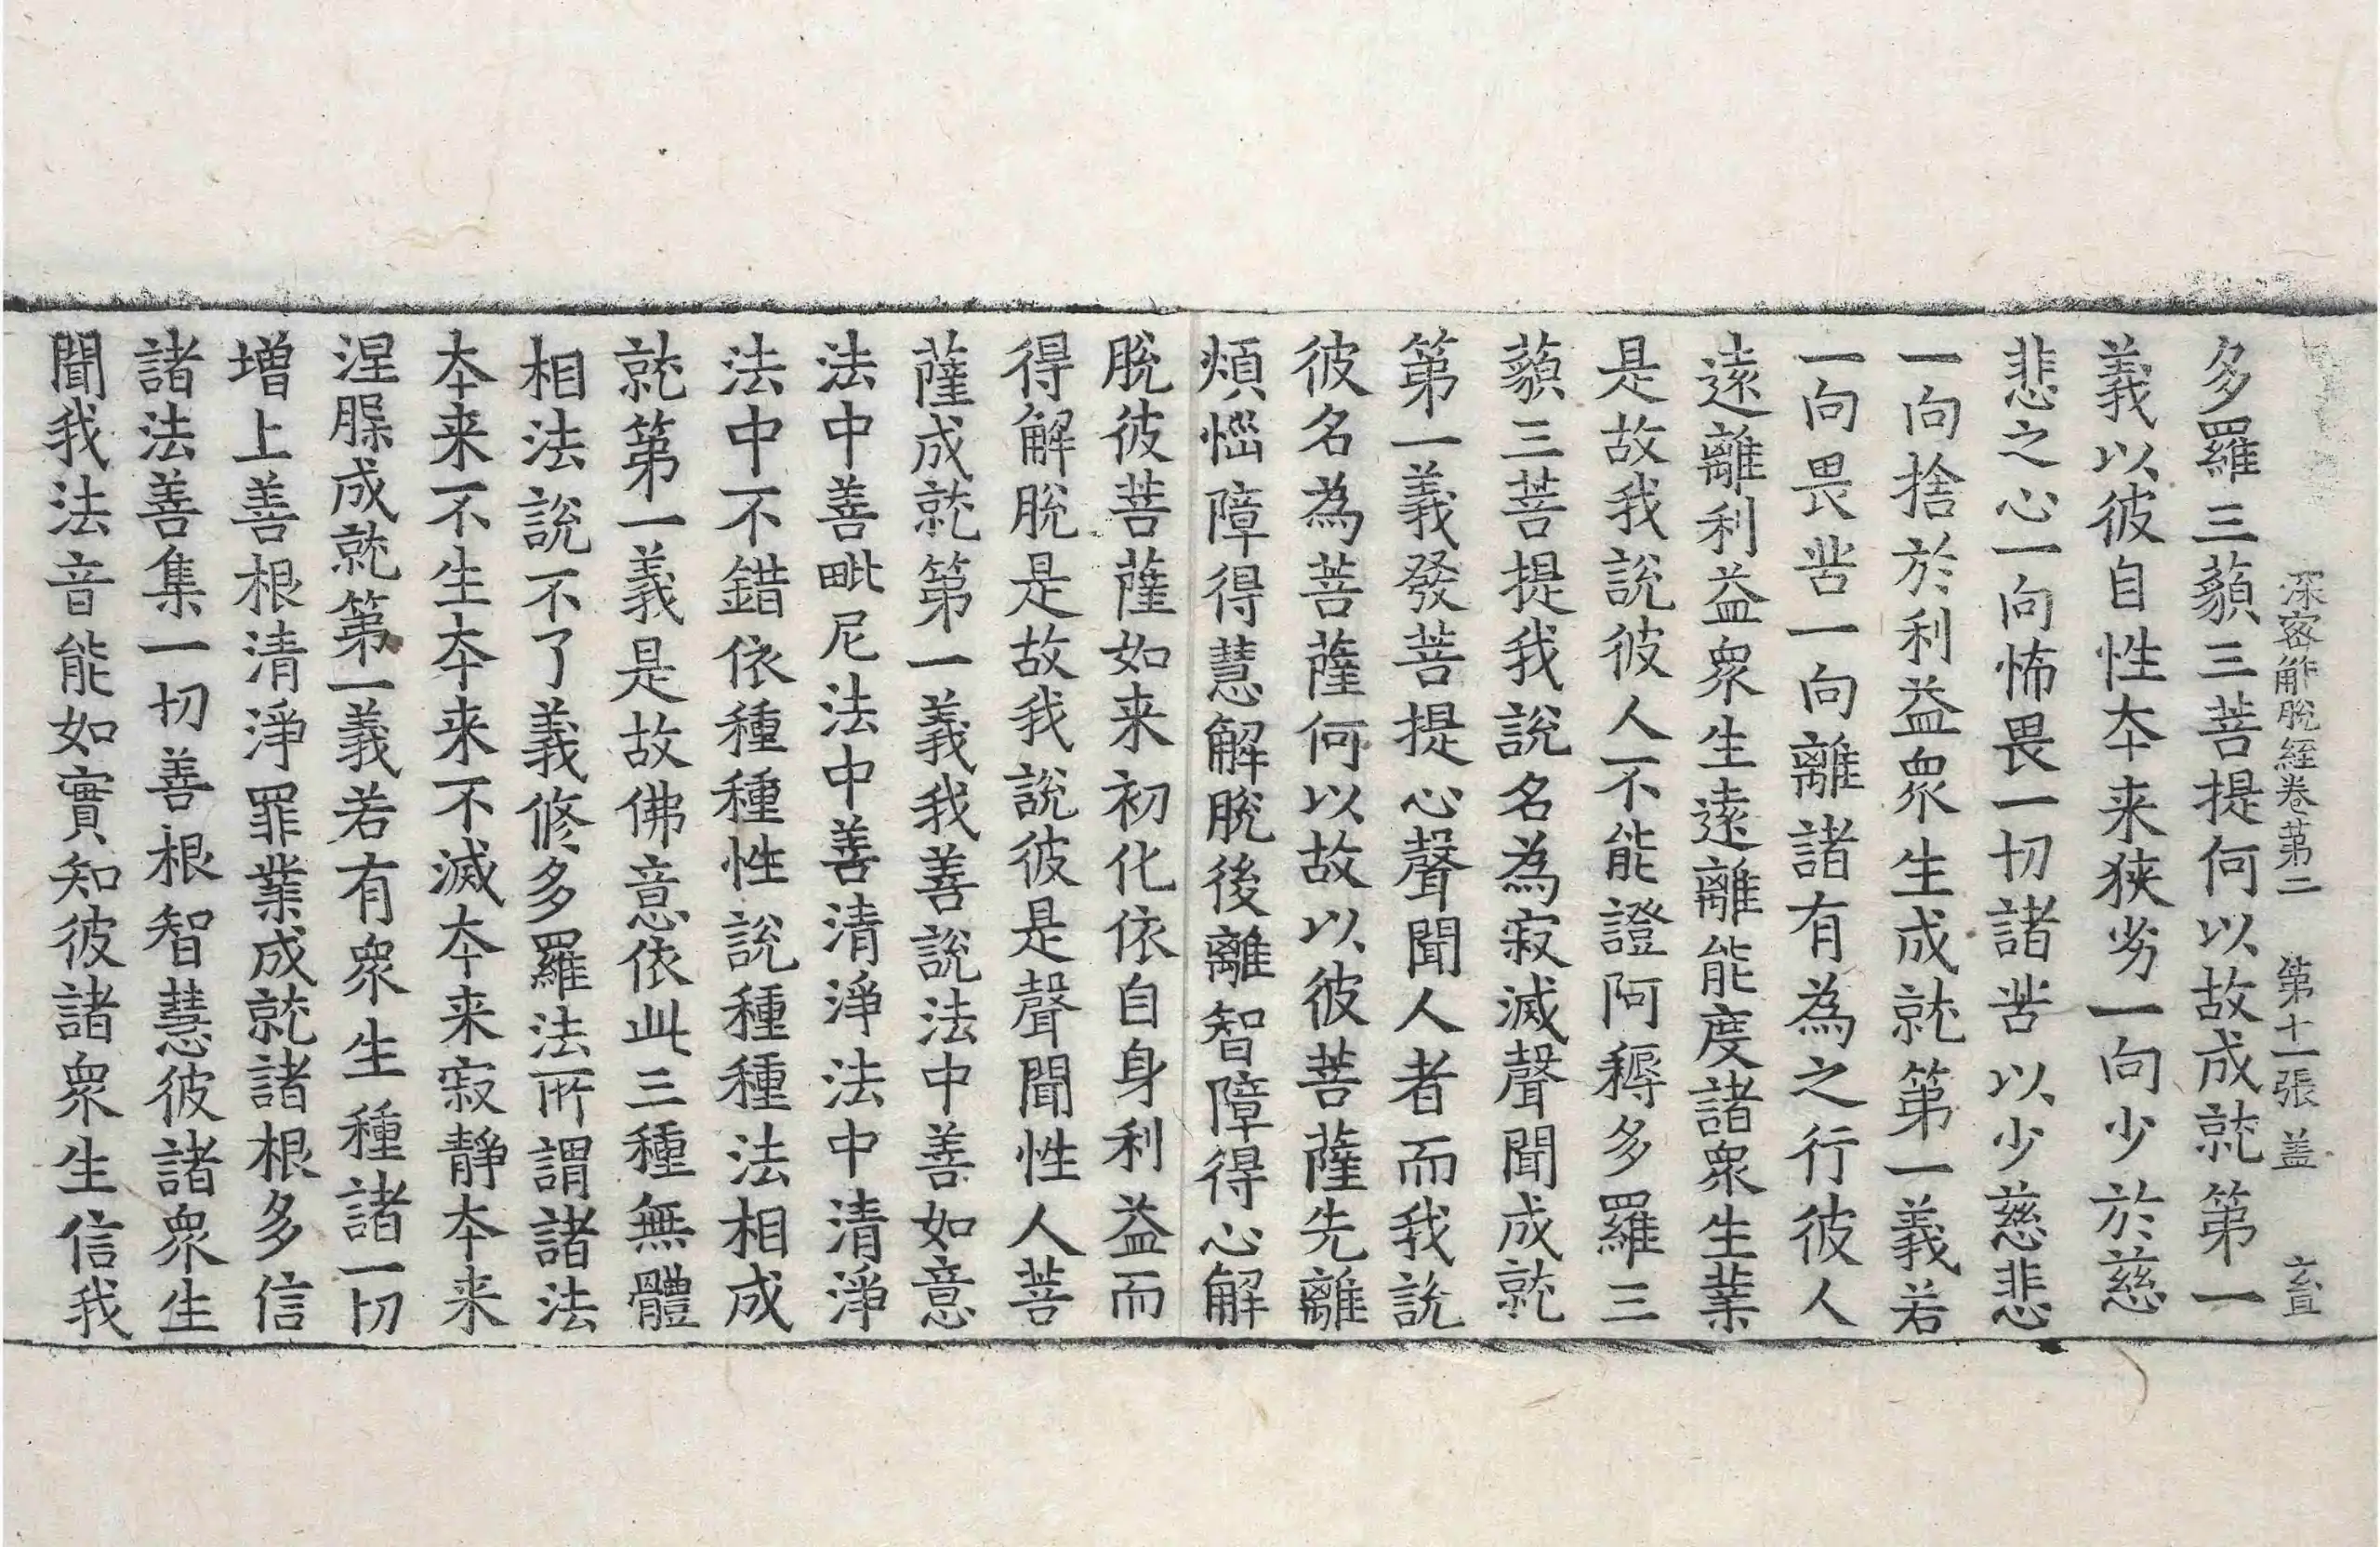 深密解脫經卷第二 第十一張 盖
多羅三藐三菩提何以故成就第一
義以彼自性夲来狹劣一向少於慈
悲之心一向怖畏一切諸苦以少慈悲
一向捨於利益衆生成就第一義若
一向畏苦一向離諸有為之行彼人
遠離利益衆生遠離能度諸衆生業
是故我說彼人不能證阿耨多羅三
藐三菩提我說名為寂滅聲聞成就
第一義發菩提心聲聞人者而我說
彼名為菩薩何以故以彼菩薩先離
煩惱障得慧解脫後離智障得心解
脫彼菩薩如来初化依自身利益而
得解脫是故我說彼是聲聞性人菩
薩成就第一義我善說法中善如意
法中善毗尼法中善清淨法中清淨
法中不錯依種種性說種種法相成
就第一義是故佛意依此三種無體
相法說不了義修多羅法所謂諸法
夲来不生夲来不滅夲来寂靜夲来
涅槃成就第一義若有衆生種諸一切
增上善根清淨罪業成就諸根多信
諸法善集一切善根智慧彼諸衆生
聞我法音能如實知彼諸衆生信我